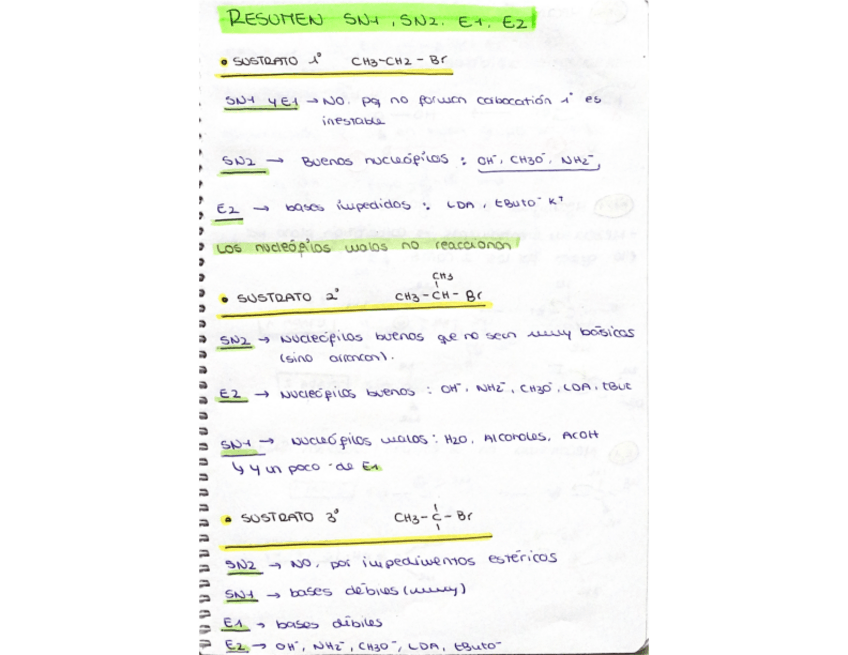 RESUMEN SN1, SN2, E1, E2
• SUSTRATO 1º CH3-CH2-Br
SN1 y E1 → NO. pq no forman carbocatión 1º es
inestable
SN2 → Buenos nucleófilos: OH⁻, CH3O⁻, NH2⁻,
E2 → bases impedidos: LDA, tButo⁻ K⁺
Los nucleófilos malos no reaccionan
CH3
• SUSTRATO 2º CH3-CH-Br
SN2 → Nucleófilos buenos que no sean muy básicos
(sino arrancan).
E2 → Nucleófilos buenos: OH⁻, NH2⁻, CH3O⁻, LDA, tBut
SN1 → Nucleófilos malos: H2O, Alcoholes, AcOH
↳ y un poco de E1
• SUSTRATO 3º CH3-C-Br
SN2 → NO, por impedimentos estéricos
SN1 → bases débiles (muy)
E1 → bases débiles
E2 → OH⁻, NH2⁻, CH3O⁻, LDA, tButo⁻